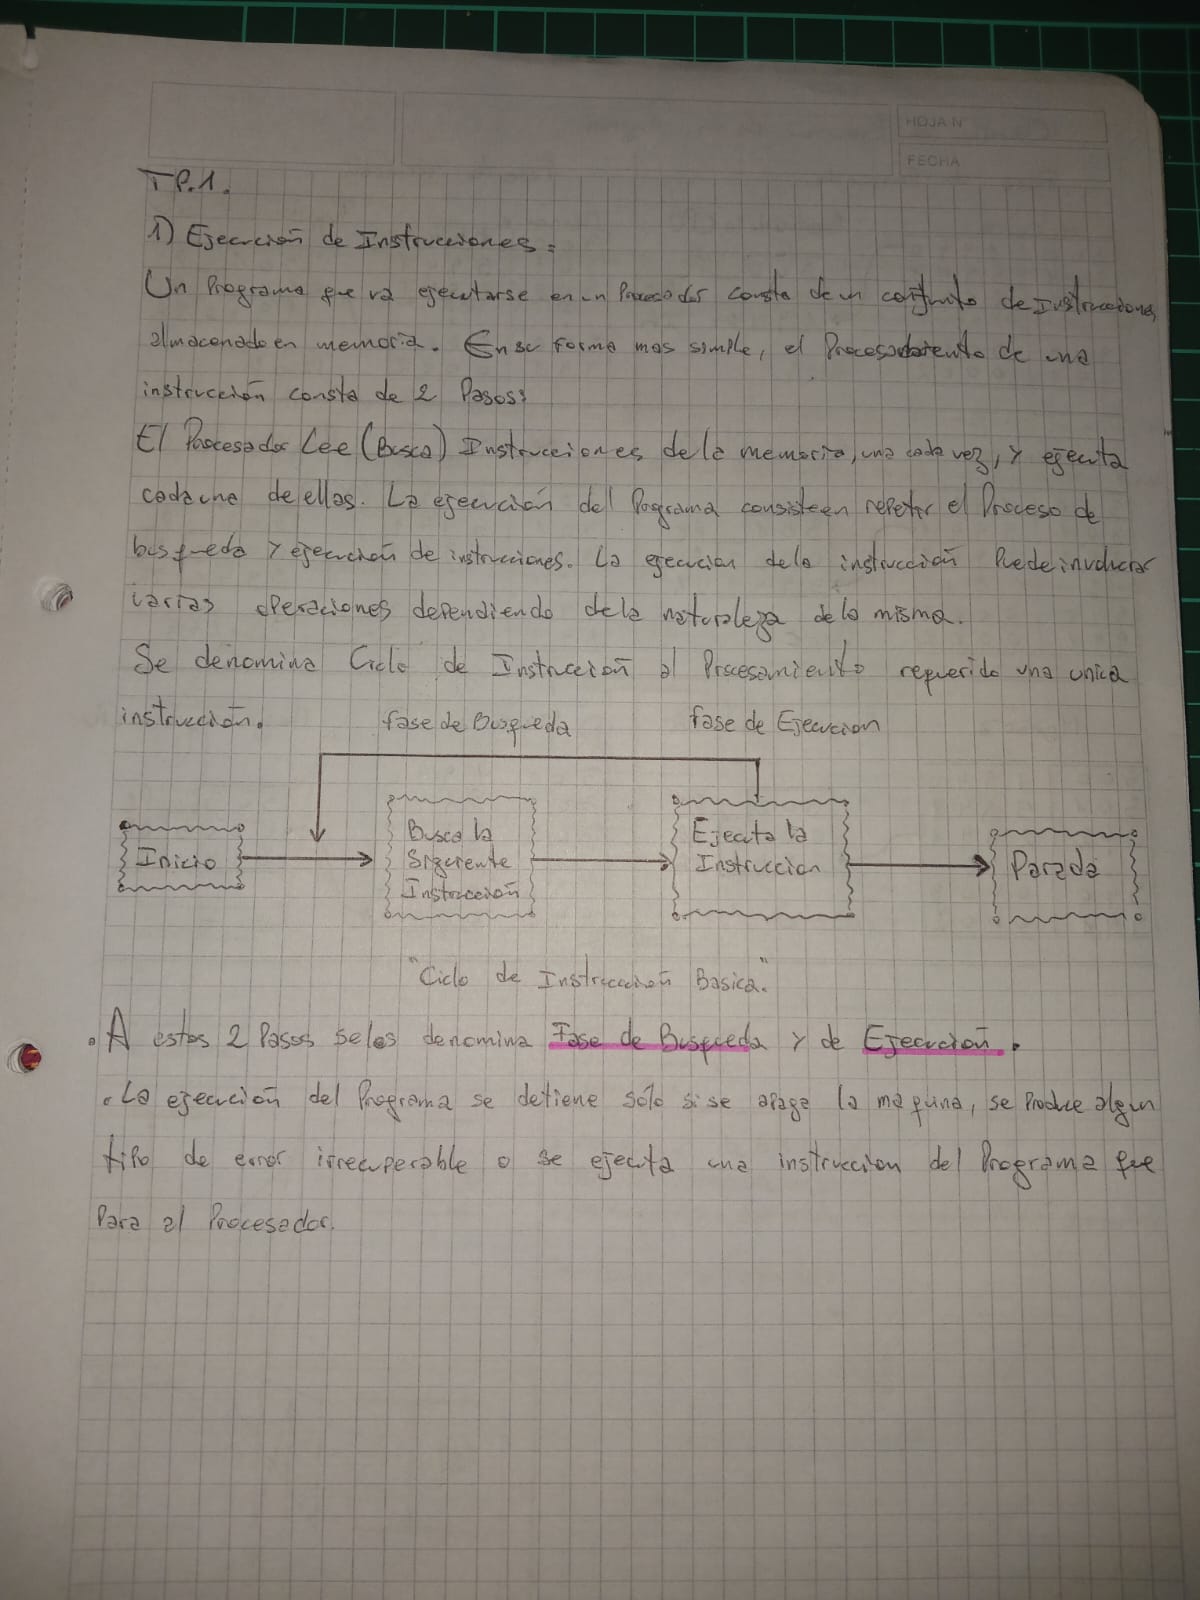 HOJA N
FECHA
TP.1.
1) Ejecución de Instrucciones:
Un Programa que va ejecutarse en un Procesador consta de un conjunto de Instrucciones
almacenado en memoria. En su forma mas simple, el Procesamiento de una
instrucción consta de 2 Pasos:
El Procesador Lee (Busca) Instrucciones de la memoria, una cada vez, y ejecuta
cada una de ellas. La ejecución del Programa consiste en repetir el Proceso de
busqueda y ejecución de instrucciones. La ejecucion de la instrucción Puede involucrar
varias operaciones dependiendo de la naturaleza de la misma.
Se denomina Ciclo de Instrucción al Procesamiento requerido una unica
instrucción.
fase de Busqueda fase de Ejecucion
Inicio
Busca la
Siguiente
Instrucción
Ejecuta la
Instruccion
Parada
"Ciclo de Instrucción Basica."
. A estos 2 Pasos se los denomina Fase de Busqueda y de Ejecución.
. La ejecución del Programa se detiene sólo si se apaga la maquina, se Produce algun
tipo de error irrecuperable o se ejecuta una instruccion del Programa que
Para al Procesador.